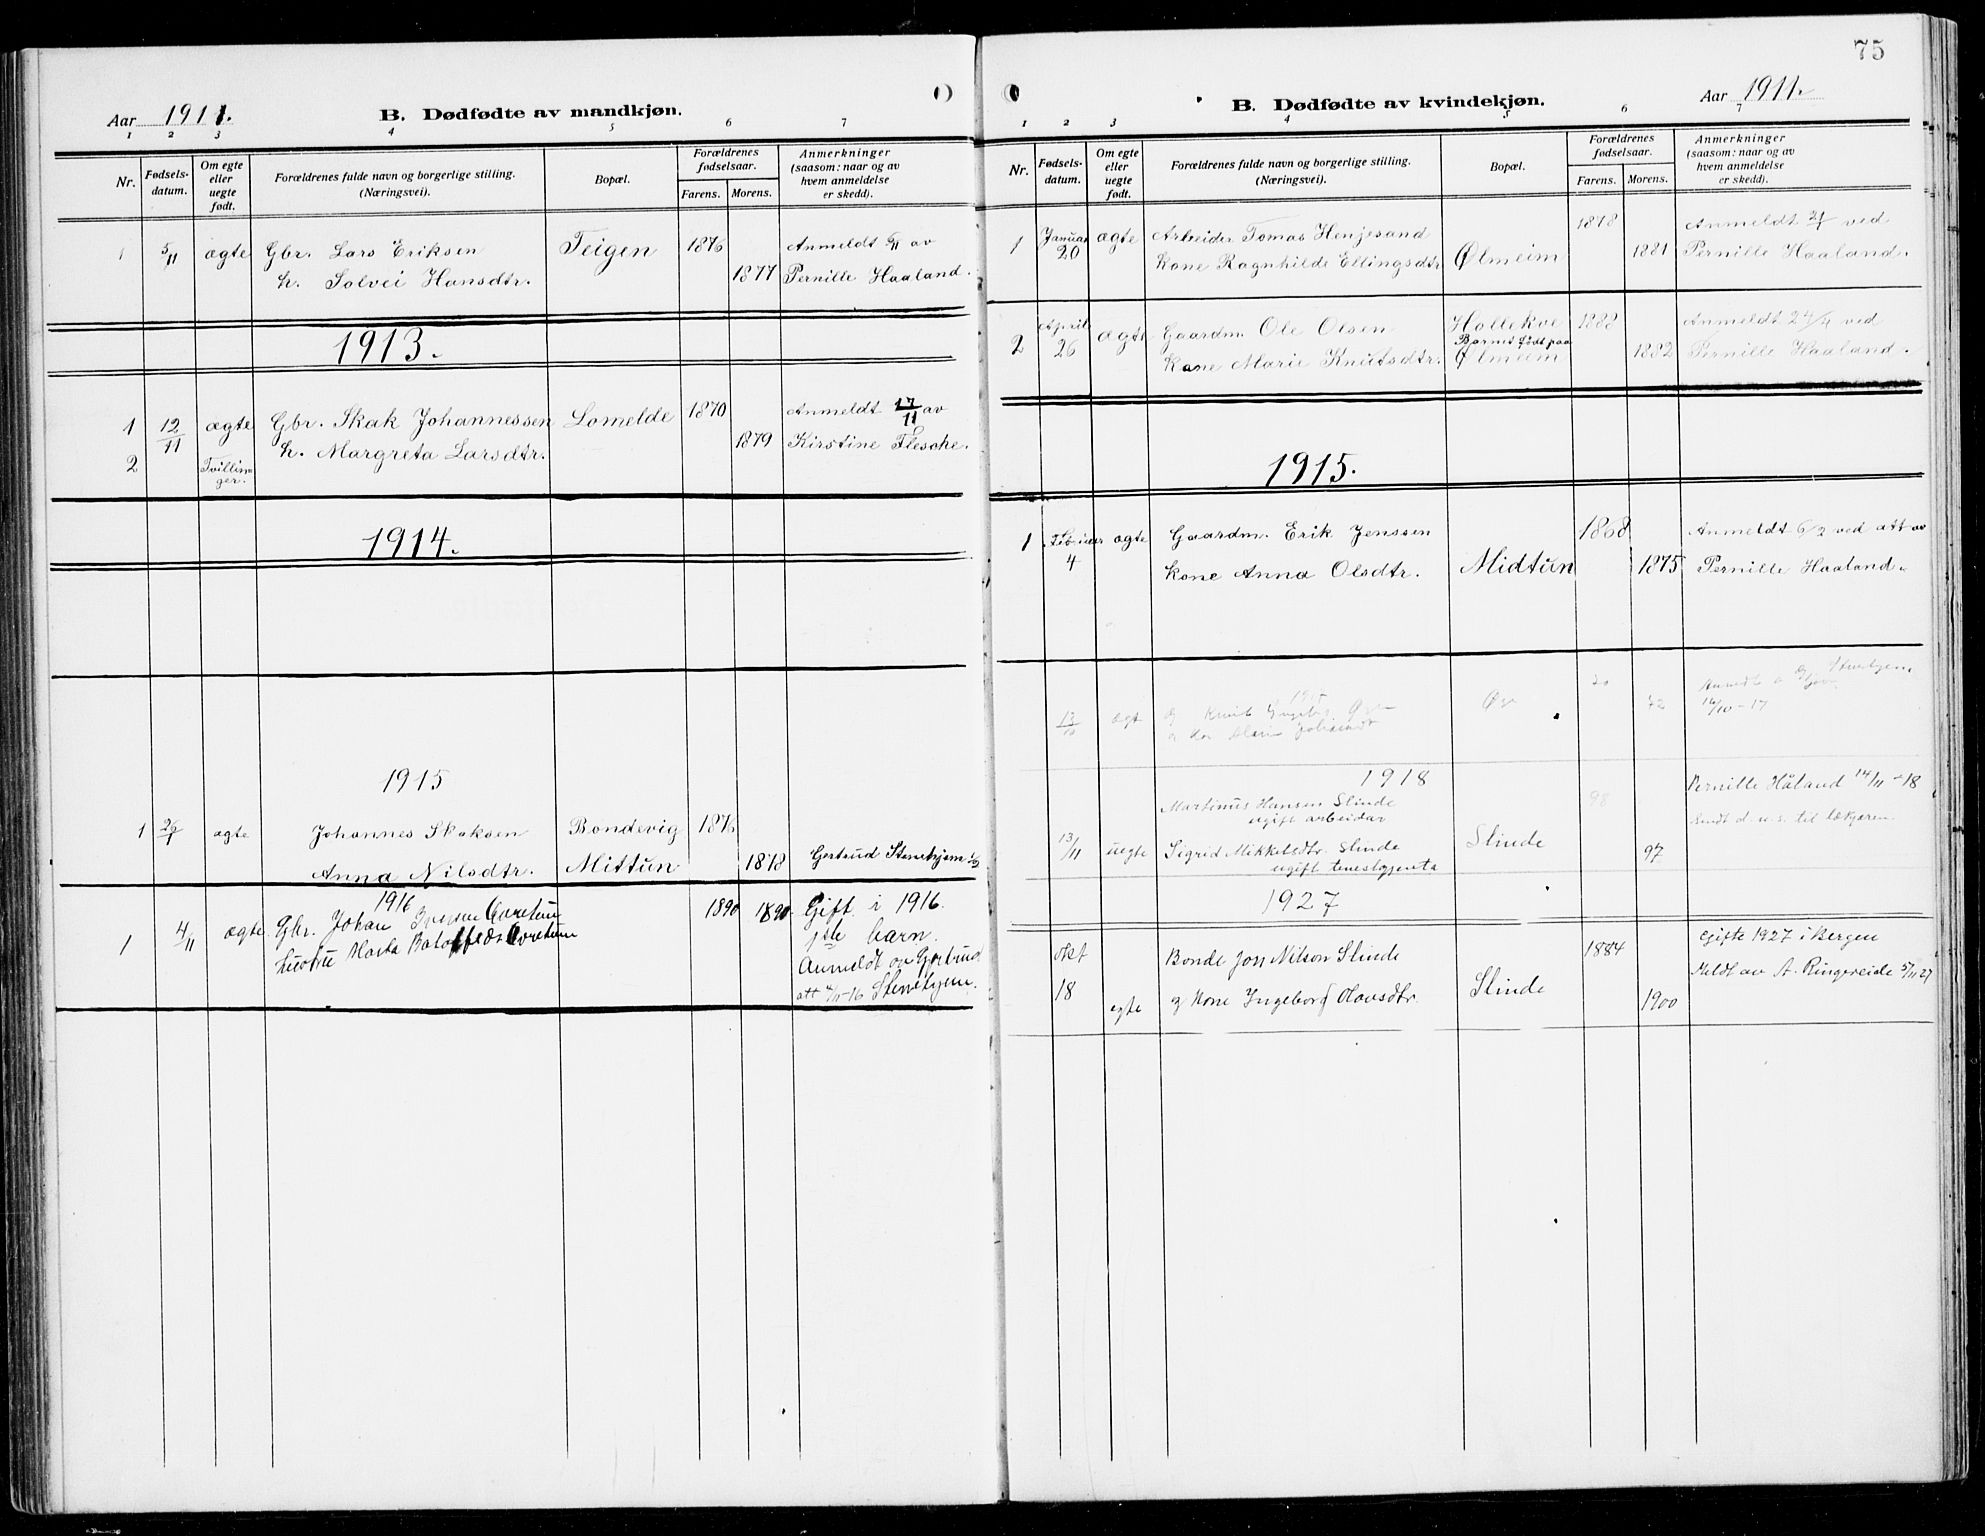 Aar 1911.
B. Dødfødte av mandkjøn.
1 2 3 4 5 6 7
Nr.
Fødsels-
datum.
Om egte
eller
uegte
født.
Forældrenes fulde navn og borgerlige stilling.
(Næringsvei).
Bopæl.
Forældrenes
fødselsaar.
Farens. Morens.
Anmerkninger
(saasom: naar og av
hvem anmeldelse
er skedd).
1 5/11 ægte Gbr. Lars Eriksen Teigen 1876 Anmeldt 6/11 av
h. Solvei Hansdtr. 1877 Pernille Haaland.
1913.
1 12/11 ægte Gbr. Skak Johannessen Lomelde 1870 Anmeldt 17/11 av
2 Tvillin-
ger. h. Margreta Larsdtr. 1879 Kirstine Flesche.
1914.
1915
1 26/1 ægte Johannes Skaksen Bondevig
Anna Nilsdtr. Mittun 1878 Gertrud Stenehjem
1916
1 4/11 ægte Gbr. Johan 1890 1890. Gift i 1916.
hustru Marta
1ste barn.
Anmeldt av Gertrud
att 4/11-16 Stenehjem.
75
B. Dødfødte av kvindekjøn.
Aar 1911.
1 2 3 4 5 6 7
Nr.
Fødsels-
datum.
Om egte
eller
uegte
født.
Forældrenes fulde navn og borgerlige stilling.
(Næringsvei).
Bopæl.
Forældrenes
fødselsaar.
Farens. Morens.
Anmerkninger
(saasom: naar og av
hvem anmeldelse
er skedd).
1 Januar ægte Arbeider Tomas Henjesand 1878 Anmeldt ved
20 Kone Ragnhilde Ellingsdtr Ølmeim 1881 Pernille Haaland.
2 April ægte Gaardm. Ole Olsen Hollekve 1888 Anmeldt 24/4 ved
26 Barnet født paa
Kone Marie Knutsdtr. Ølmeim 1882 Pernille Haaland.
1915.
1 Februar ægte Gaardm. Erik Jenssen 1868 Anmeldt 6/2 ved att av
4 Kone Anna Olsdtr. Midtun 1875 Pernille Haaland.
13/10 ægt Knut
16/10-17
1918
Martinus Hansen Slinde Pernille Håland 14/11-18
ugift arbeidar
13/11 uegte Sigrid Mikkelsdtr. Slinde Slinde 97
ugift tenestgjenta
1927
Okt Bonde Jon Nilson Slinde 1884 Gifte 1927 i Bergen
Meldt av A. Ringereide 5/11 27
18 egte og Kone Ingeborg Olavsdtr. Slinde 1900